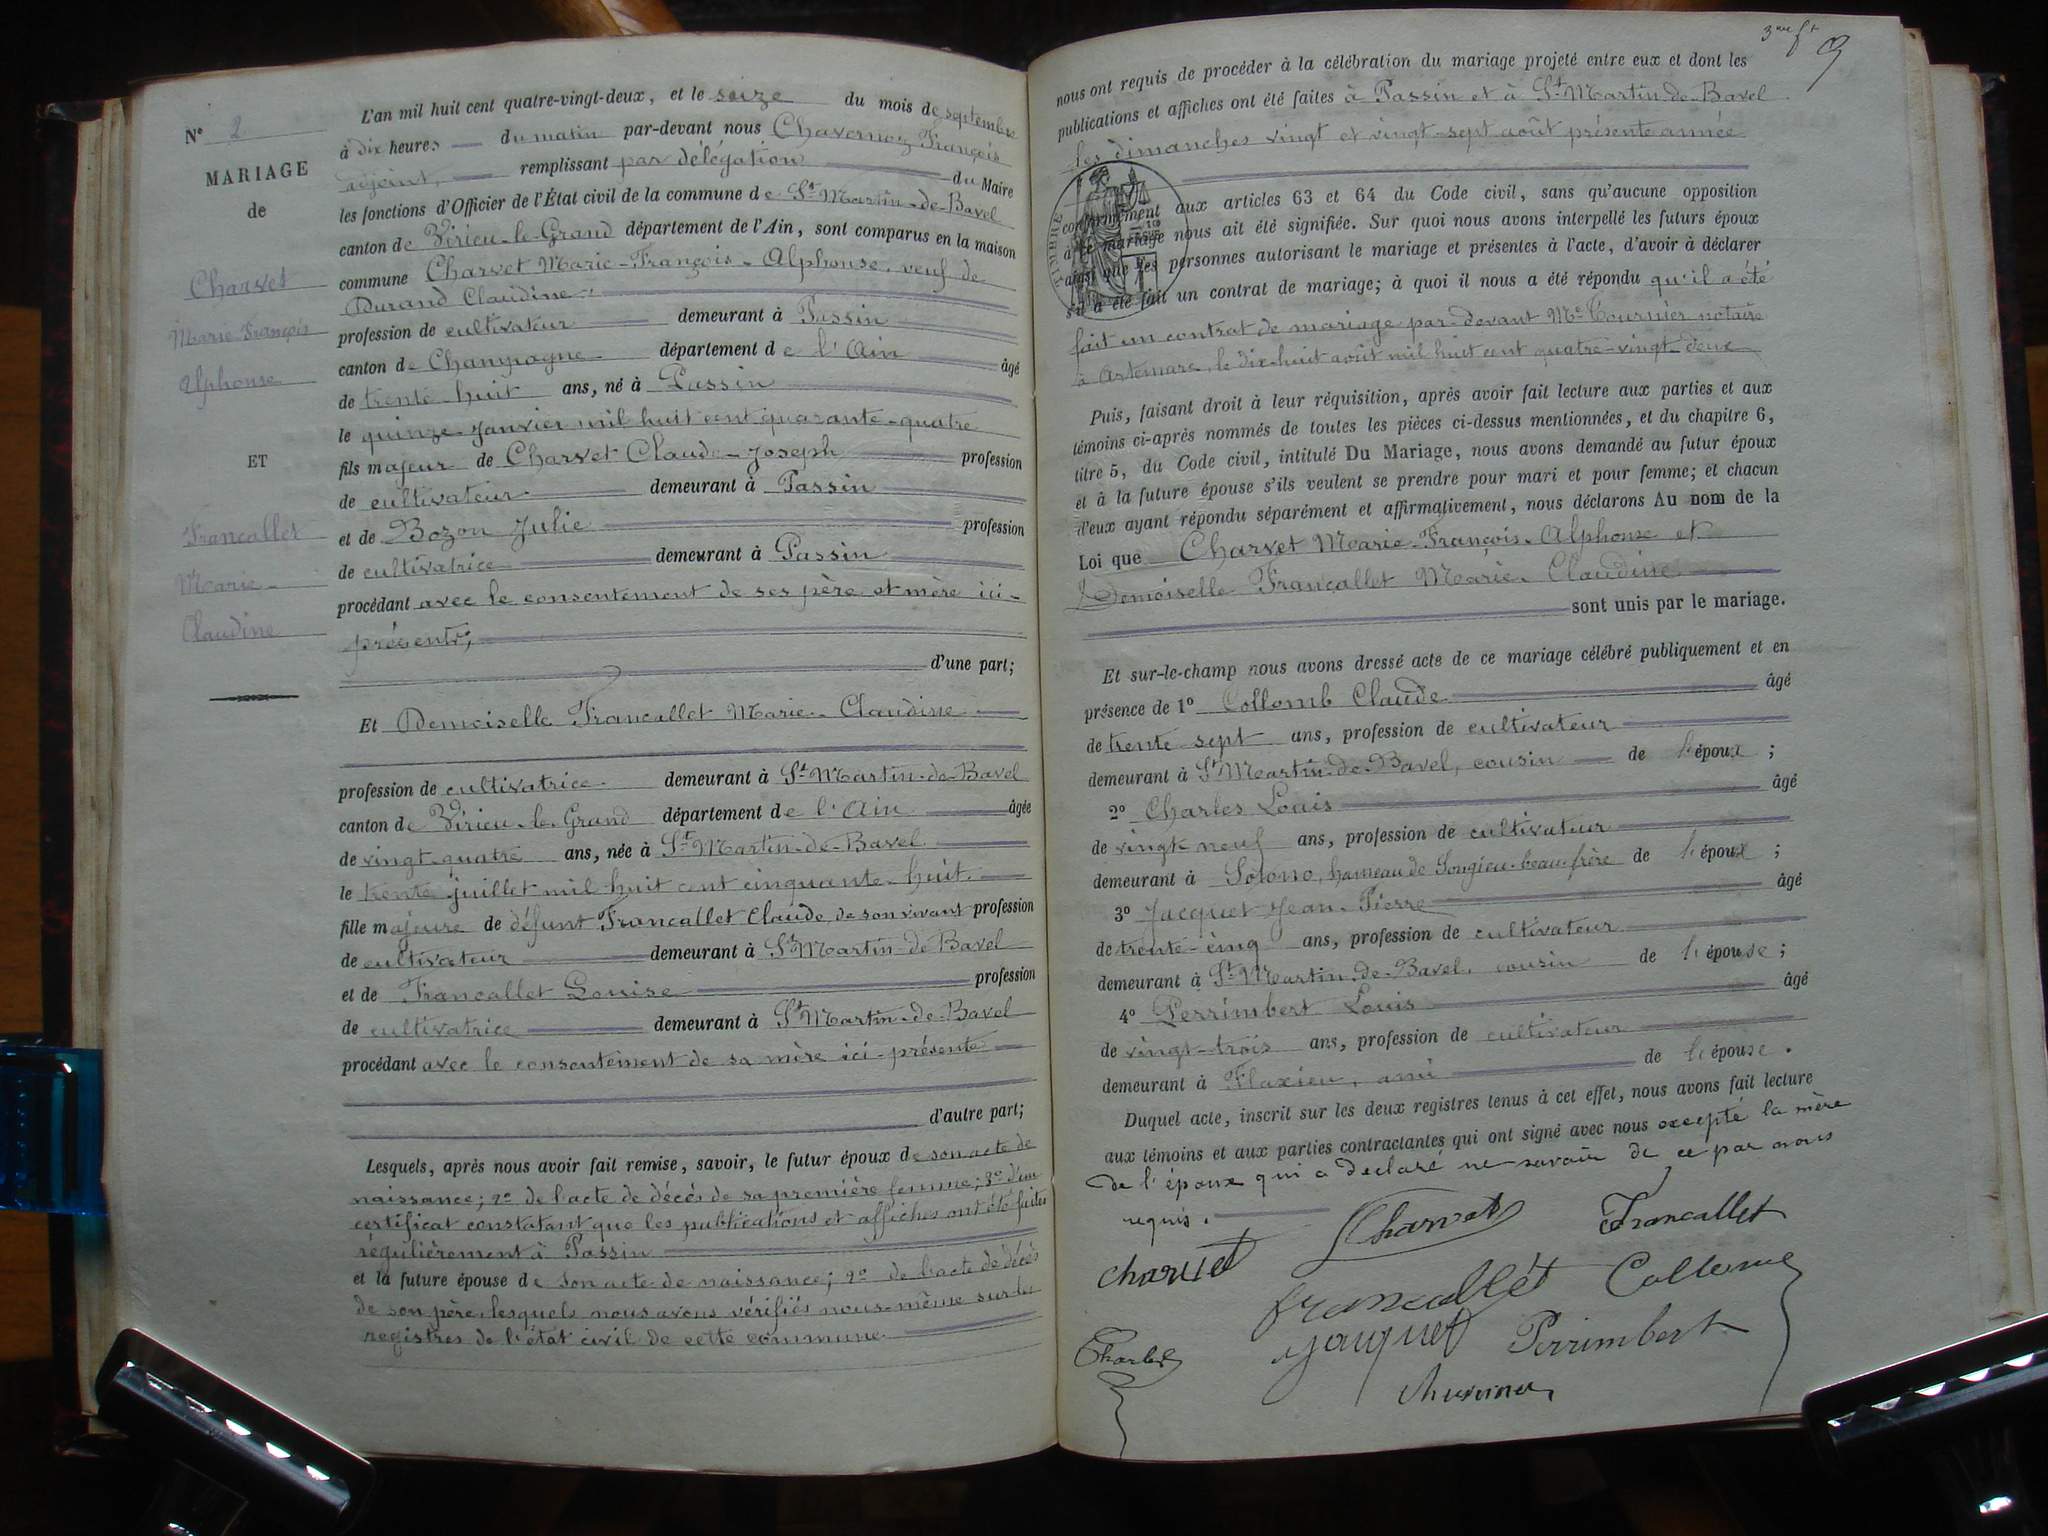 N° 2
MARIAGE
de
Charvet
Marie François
Alphonse
ET
Francallet
Marie
Claudine
L'an mil huit cent quatre-vingt-deux, et le seize du mois de septembre
à dix heures du matin par-devant nous Chavornoz François
adjoint, remplissant par délégation du Maire
les fonctions d'Officier de l'État civil de la commune de St Martin-de-Bavel
canton de Virieu-le-Grand département de l'Ain, sont comparus en la maison
commune Charvet Marie-François-Alphonse, veuf de
Durand Claudine
profession de cultivateur demeurant à Passin
canton de Champagne département de l'Ain âgé
de trente-huit ans, né à Passin
le quinze janvier mil huit cent quarante-quatre
fils majeur de Charvet Claude-Joseph profession
de cultivateur demeurant à Passin
et de Bozon Julie profession
de cultivatrice demeurant à Passin
procédant avec le consentement de ses père et mère ici-
présents;
d'une part;
Et Demoiselle Francallet Marie-Claudine
profession de cultivatrice demeurant à St Martin-de-Bavel
canton de Virieu-le-Grand département de l'Ain âgée
de vingt-quatre ans, née à St Martin-de-Bavel
le trente juillet mil huit cent cinquante-huit
fille majeure de défunt Francallet Claude, de son vivant profession
de cultivateur demeurant à St Martin-de-Bavel
et de Francallet Louise profession
de cultivatrice demeurant à St Martin-de-Bavel
procédant avec le consentement de sa mère ici-présente
d'autre part;
Lesquels, après nous avoir fait remise, savoir, le futur époux de son acte de
naissance; 2° de l'acte de décès de sa première femme; 3° d'un
certificat constatant que les publications et affiches ont été faites
régulièrement à Passin
et la future épouse de son acte de naissance; 2° de l'acte de décès
de son père, lesquels nous avons vérifiés nous-même sur les
registres de l'état civil de cette commune.
9
nous ont requis de procéder à la célébration du mariage projeté entre eux et dont les
publications et affiches ont été faites à Passin et à St Martin-de-Bavel
les dimanches vingt et vingt-sept août présente année
TIMBRE
conformément aux articles 63 et 64 du Code civil, sans qu'aucune opposition
à ce mariage nous ait été signifiée. Sur quoi nous avons interpellé les futurs époux
ainsi que les personnes autorisant le mariage et présentes à l'acte, d'avoir à déclarer
s'il a été fait un contrat de mariage; à quoi il nous a été répondu qu'il a été
fait un contrat de mariage par-devant Me Tournier notaire
à Artemare, le dix-huit août mil huit cent quatre-vingt-deux
Puis, faisant droit à leur réquisition, après avoir fait lecture aux parties et aux
témoins ci-après nommés de toutes les pièces ci-dessus mentionnées, et du chapitre 6,
titre 5, du Code civil, intitulé Du Mariage, nous avons demandé au futur époux
et à la future épouse s'ils veulent se prendre pour mari et pour femme; et chacun
d'eux ayant répondu séparément et affirmativement, nous déclarons Au nom de la
Loi que Charvet Marie-François-Alphonse et
Demoiselle Francallet Marie-Claudine
sont unis par le mariage.
Et sur-le-champ nous avons dressé acte de ce mariage célébré publiquement et en
présence de 1° Collomb Claude âgé
de trente sept ans, profession de cultivateur
demeurant à St Martin-de-Bavel, cousin de l'époux;
2° Charles Louis âgé
de vingt neuf ans, profession de cultivateur
demeurant à hameau de Songieu, beau-frère de l'époux;
3° Jacquet Jean-Pierre âgé
de trente-cinq ans, profession de cultivateur
demeurant à St Martin-de-Bavel, cousin de l'épouse;
4° Perrimbert Louis âgé
de vingt-trois ans, profession de cultivateur
demeurant à Flaxieu, ami de l'épouse.
Duquel acte, inscrit sur les deux registres tenus à cet effet, nous avons fait lecture
aux témoins et aux parties contractantes qui ont signé avec nous excepté la mère
de l'époux qui a déclaré ne savoir de ce par nous
requis.
Charvet Charvet Francallet
Francallet Collomb
Charles Jacquet Perrimbert